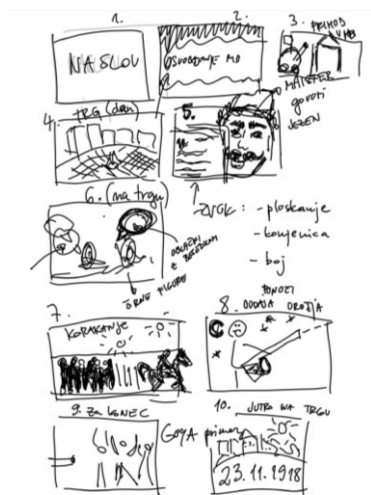 1.
NASLOV
2.
OSVOBODITEV MB
3. PRIHOD
V MB
MAISTER
govori
JEZEN
4. TRG (dan)
5.
6. (na trgu)
OBLAČKI
Z BESEDAM
ČRNE FIGURE
ZVOK: - ploskanje
- konjenica
- boj
7.
KORAKANJE
PONOČI
8. ODDAJA OROŽJA
9. Za KONEC
Goya primer
10. JUTRO NA TRGU
23.11.1918